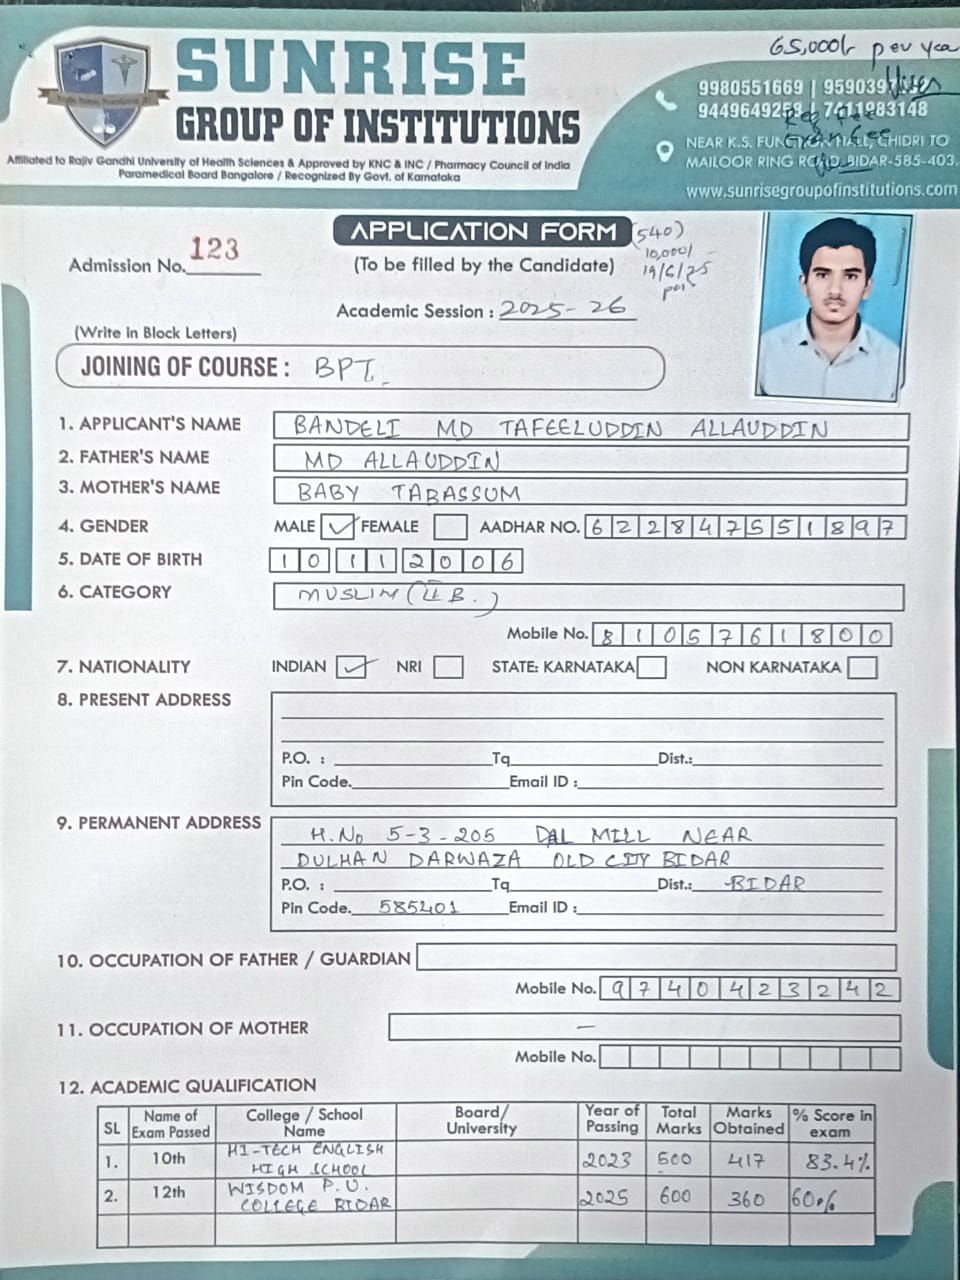 65,000/- per year
SUNRISE
GROUP OF INSTITUTIONS
Affiliated to Rajiv Gandhi University of Health Sciences & Approved by KNC & INC / Pharmacy Council of India
Paramedical Board Bangalore / Recognized By Govt. of Karnataka
9980551669 | 959039
9449649258 | 7411983148
NEAR K.S. FUNCTION HALL, CHIDRI TO
MAILOOR RING ROAD BIDAR-585-403.
www.sunrisegroupofinstitutions.com
APPLICATION FORM
(540)
10,000/-
19/6/25
Admission No. 123
(To be filled by the Candidate)
Academic Session : 2025-26
(Write in Block Letters)
JOINING OF COURSE : BPT.
1. APPLICANT'S NAME BANDELI MD TAFEELUDDIN ALLAUDDIN
2. FATHER'S NAME MD ALLAUDDIN
3. MOTHER'S NAME BABY TABASSUM
4. GENDER MALE ✓ FEMALE AADHAR NO. 622847551897
5. DATE OF BIRTH 10 11 2006
6. CATEGORY MUSLIM (II B.)
Mobile No. 8105761800
7. NATIONALITY INDIAN ✓ NRI STATE: KARNATAKA NON KARNATAKA
8. PRESENT ADDRESS
P.O. : Tq Dist.:
Pin Code. Email ID :
9. PERMANENT ADDRESS H.No 5-3-205 DAL MILL NEAR
DULHAN DARWAZA OLD CITY BIDAR
P.O. : Tq Dist.: BIDAR
Pin Code. 585401 Email ID :
10. OCCUPATION OF FATHER / GUARDIAN
Mobile No. 9740423242
11. OCCUPATION OF MOTHER —
Mobile No.
12. ACADEMIC QUALIFICATION
SL Name of Exam Passed College / School Name Board/ University Year of Passing Total Marks Marks Obtained % Score in exam
1. 10th HI-TECH ENGLISH HIGH SCHOOL 2023 500 417 83.4%
2. 12th WISDOM P.U. COLLEGE BIDAR 2025 600 360 60%